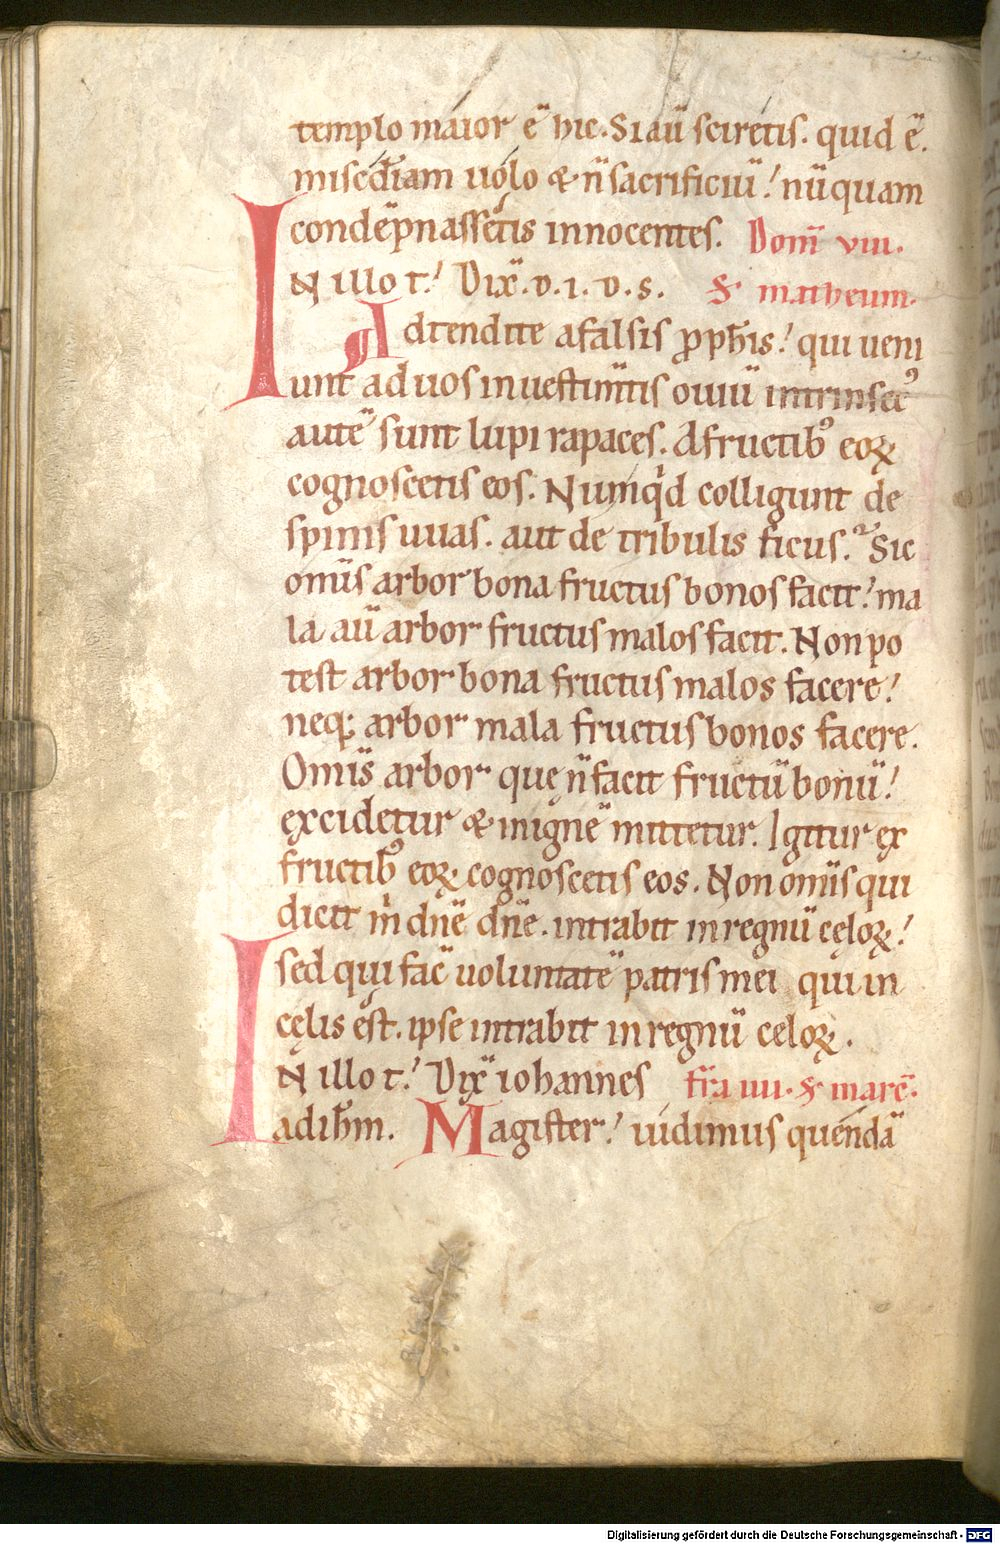 templo maior ē hic. Si aū sciretis. quid ē.
misc̄diam uolo & n̄ sacrificiū! nūquam
condēpnassetis innocentes. Dom̄ viii.
IN illo t̄! Dix̄. d. i. d. s. S. matheum.
Adtendite a falsis ꝓph̄is! qui ueni
unt ad uos in uestim̄tis ouiū intrinsecꝰ
autē sunt lupi rapaces. A fructibꝰ eoꝝ
cognoscetis eos. Numqͥd colligunt de
spinis uuas. aut de tribulis ficus. Sic
om̄is arbor bona fructus bonos facit! ma
la aū arbor fructus malos facit. Non po
test arbor bona fructus malos facere!
neqꝫ arbor mala fructus bonos facere.
Om̄is arbor quę n̄ facit fructū bonū!
excidetur & in ignē mittetur. Igitur ex
fructibꝰ eoꝝ cognoscetis eos. Non om̄is qui
dicit mͥ dn̄e dn̄e. intrabit in regnū cęloꝝ!
sed qui fac̄ uoluntatē patris mei qui in
cęlis est. ipse intrabit in regnū celoꝝ.
IN illo t̄! Dix̄ iohannes fr̄a iiii. S. marc̄.
ad ih̄m. Magister! uidimus quendā
Digitalisierung gefördert durch die Deutsche Forschungsgemeinschaft - DFG